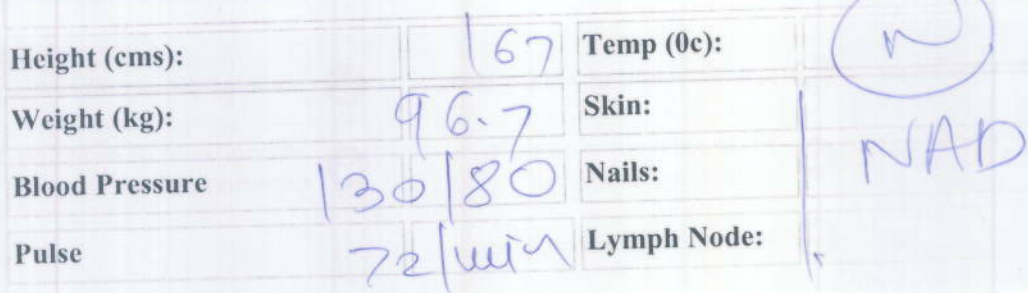 Height (cms): 167 Temp (0c): N
Weight (kg): 96.7 Skin:
Blood Pressure 130/80 Nails: NAD
Pulse 72/min Lymph Node: